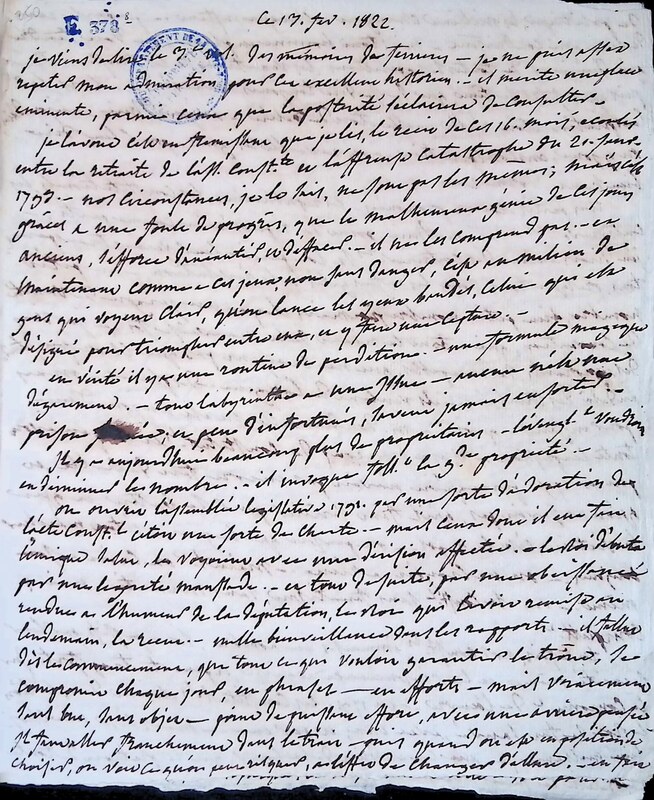 E 378⁸
ce 17. fév. 1822.
je viens de lire le 3e vol. des mémoires de ferrieres — je ne puis assez
répéter mon admiration pour cet excellent historien. — il mérite une place
éminente, parmi ceux que la postérité éclairée de consulter.
je l'avoue c'est en que je lis, le récit de ces 16. mois, écoulés
entre la retraite de l'ass. constte et l'affreuse catastrophe du 21. janv.
1793. — nos circonstances, je le sais, ne sont pas les mêmes; mais c'est
grâces a une foule de progrès, que le malheureux génie de ces jours
anciens, s'efforce d'anéantir, et d'effacer. — il ne les comprend pas. — et
maintenant comme a ces jeux, non sans danger, c'est au milieu de
gens qui voyent clair, qu'on lance les yeux bandés, celui qui est
désigné pour triompher entre eux, et y faire une capture. —
en vérité il y a une routine de perdition. — une formule magique
d'égarement. — tout labyrinthe a une issue — aucun n'est une
prison, et peu d'infortunés, savent jamais en sortir. —
il y a aujourd'hui beaucoup plus de propriétaires — l'aveuglt voudrait
en diminuer le nombre. — il invoque la gde propriété. —
on ouvrit l'assemblée législative 1791. par une sorte d'adoration de
l'acte constl c'était une sorte de charte. — mais ceux dont il eut fait
l'unique salut, le voyoient avec une dérision affectée. — le roi débuta
par une — et tout de suite, par une obéissance
rendue a l'humeur de la députation, le roi qui l'avoit remise au
lendemain, la reçut. — nulle bienveillance dans les rapports — il fallut
dès le commencement, que tout ce qui vouloit garantir le trône, se
compromit chaque jour, en phrases — en efforts — mais vraiment
sans but, sans objet — point de puissant effort, avec une arrière pensée
il faut aller franchement dans le train — puis quand on est en position de
choisir, on voit ce qu'on peut risquer, de changer d'allure. — en fait